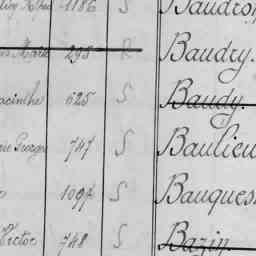 1186 S Baudro
295 R Baudry.
acinthe 625 S Baudy.
Georges 747 S Baulieu
1097 S Bauques
Victor 748 S Bazin.